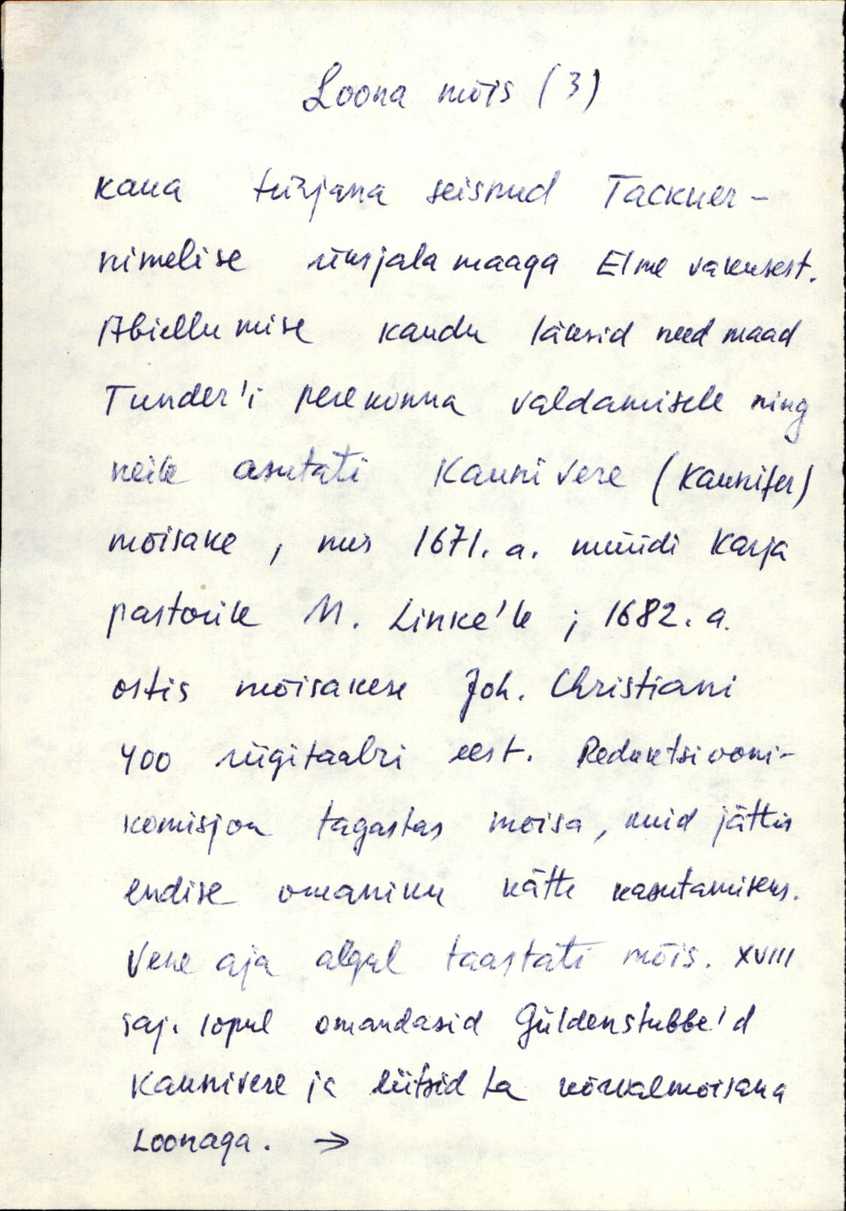 Loona mõis (3)
kaua tühjana seisnud Tackner-
nimelise üksjala maaga Elme vakusest.
Abiellumise kaudu läksid need maad
Tunder'i perekonna valdamisele ning
neile asutati Kaunivere (Kaunifer)
mõisake, mis 1671. a. müüdi Karja
pastorile M. Linke'le; 1682. a.
ostis mõisakese Joh. Christiani
400 riigitaalri eest. Reduktsiooni-
komisjon tagastas mõisa, kuid jättis
endise omaniku kätte kasutamiseks.
Vene aja algul taastati mõis. XVIII
saj. lopul omandasid Güldenstubbe'd
Kaunivere ja liitsid ta kõrvalmoisana
Loonaga. →